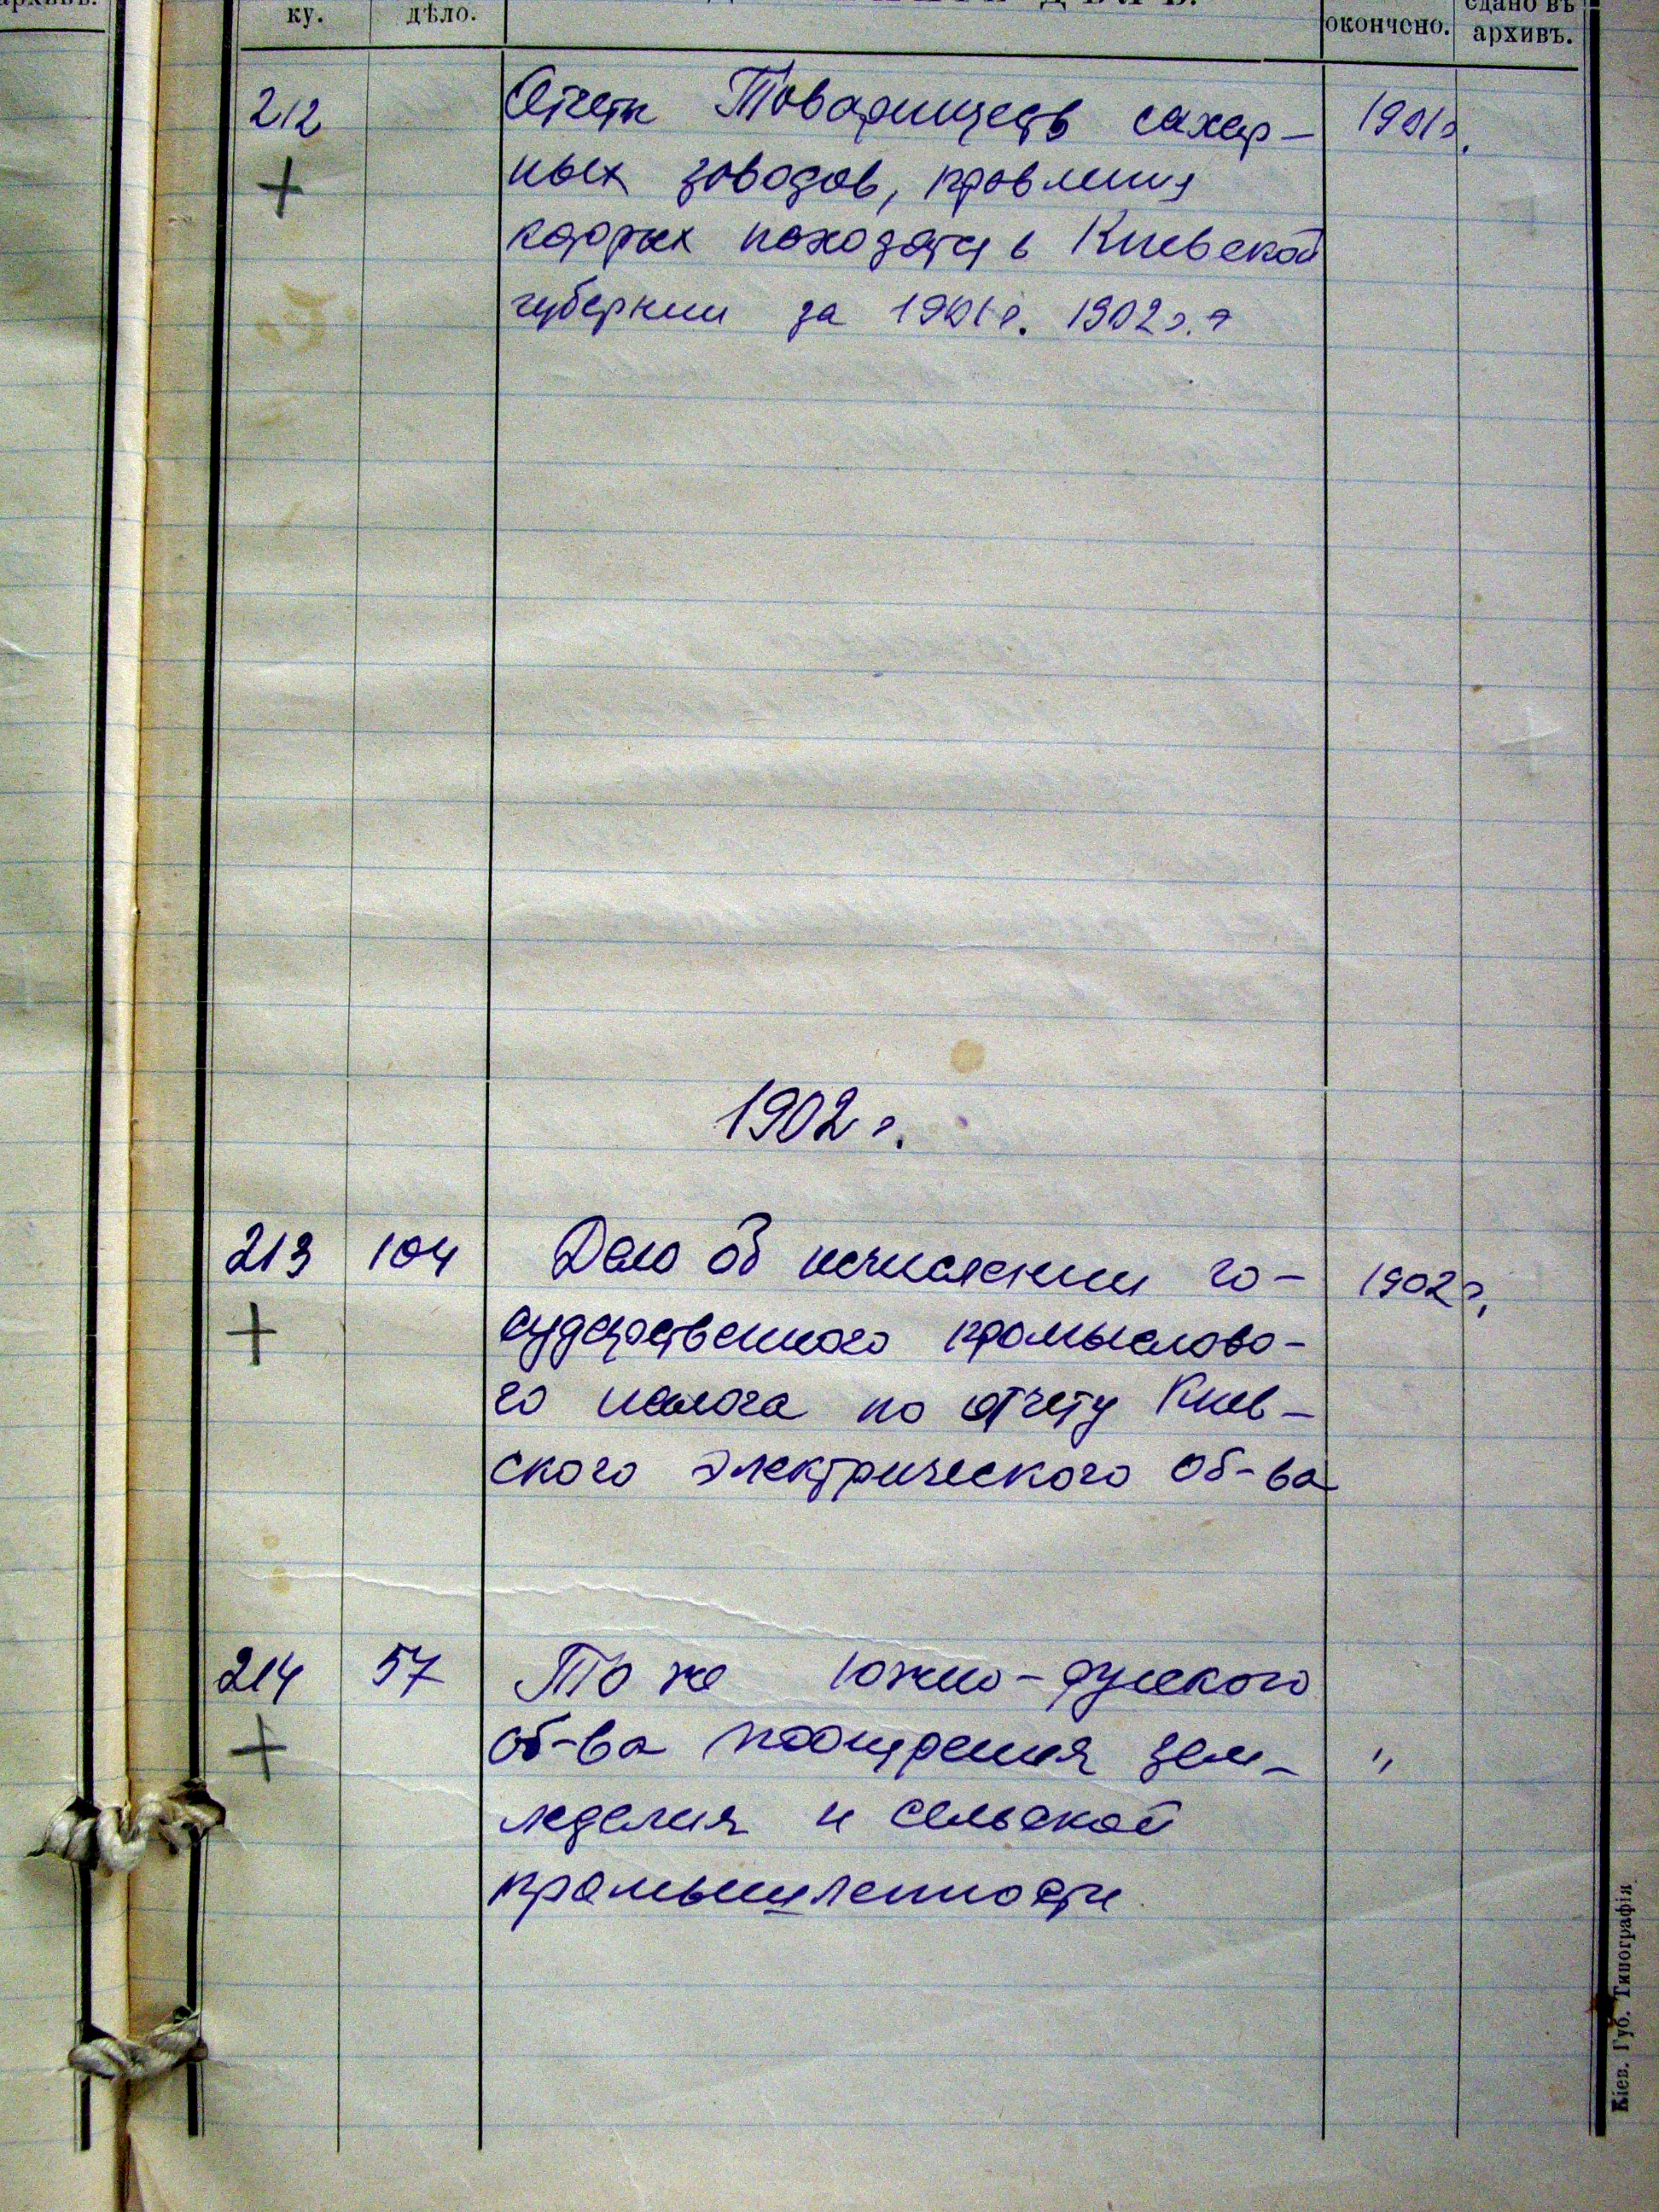 ку. дѣло. окончено. сдано въ архивъ.
212 Отчеты Товариществ сахар- 1901г.
+ ных заводов, правления
которых находятся в Киевской
губернии за 1901г. 1902г.
1902 г.
213 104 Дело об исчислении го- 1902г.
+ сударственного промыслово-
го налога по отчету Киев-
ского электрического об-ва
214 57 То же Южно-русского
+ об-ва поощрения зем- "
леделия и сельской
промышленности
Кіев. Губ. Типографія